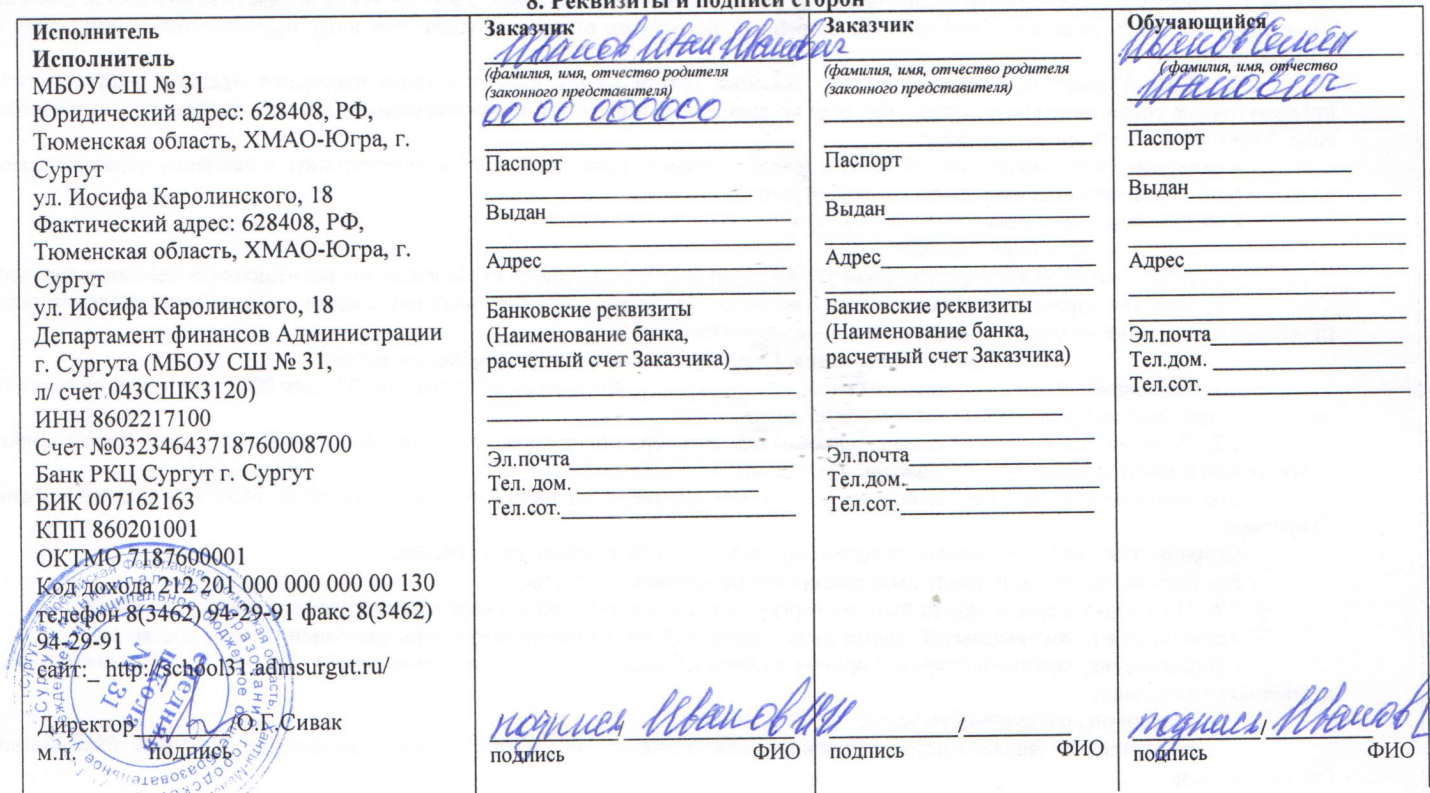 8. Реквизиты и подписи сторон
Исполнитель
Исполнитель
МБОУ СШ № 31
Юридический адрес: 628408, РФ,
Тюменская область, ХМАО-Югра, г.
Сургут
ул. Иосифа Каролинского, 18
Фактический адрес: 628408, РФ,
Тюменская область, ХМАО-Югра, г.
Сургут
ул. Иосифа Каролинского, 18
Департамент финансов Администрации
г. Сургута (МБОУ СШ № 31,
л/ счет.043СШК3120)
ИНН 8602217100
Счет №03234643718760008700
Банк РКЦ Сургут г. Сургут
БИК 007162163
КПП 860201001
ОКТМО 7187600001
Код дохода 212 201 000 000 000 00 130
телефон 8(3462) 94-29-91 факс 8(3462)
94-29-91
сайт:_ http://school31.admsurgut.ru/
Директор________/О.Г.Сивак
м.п. подпись
средняя
школа
№ 31
Заказчик
Иванов Иван Иванович
(фамилия, имя, отчество родителя
(законного представителя)
00 00 000000
Паспорт
Выдан
Адрес
Банковские реквизиты
(Наименование банка,
расчетный счет Заказчика)
Эл.почта
Тел. дом.
Тел.сот.
подпись / Иванов ИИ
подпись ФИО
Заказчик
(фамилия, имя, отчество родителя
(законного представителя)
Паспорт
Выдан
Адрес
Банковские реквизиты
(Наименование банка,
расчетный счет Заказчика)
Эл.почта
Тел.дом.
Тел.сот.
/
подпись ФИО
Обучающийся
Иванов Семён
(фамилия, имя, отчество
Иванович
Паспорт
Выдан
Адрес
Эл.почта
Тел.дом.
Тел.сот.
подпись / Иванов
подпись ФИО